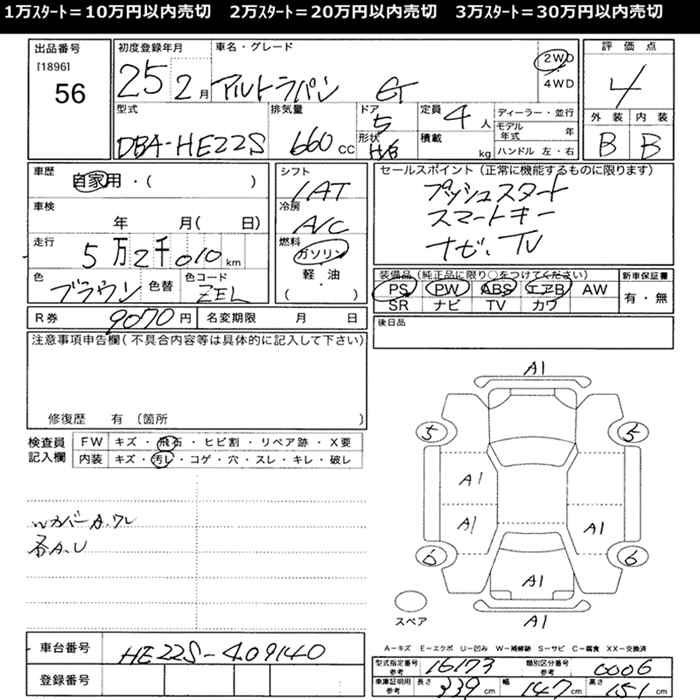 1万スタート=10万円以内売切 2万スタート=20万円以内売切 3万スタート=30万円以内売切
出品番号
[1896]
56
初度登録年月
25 2月
車名・グレード
アルトラパン GT
2WD
4WD
評価点
4
外装 内装
B B
型式
DBA-HE22S
排気量
660 CC
ドア
5
形状
H/B
定員 4 人
積載 kg
ディーラー・並行
モデル年式 年
ハンドル 左・右
車歴
自家用・( )
車検
年 月( 日)
走行
5万2千010km
色
ブラウン
色替
色コード
ZEL
シフト
IAT
冷房
A/C
燃料
ガソリン
軽・油
( )
セールスポイント(正常に機能するものに限ります)
プッシュスタート
スマートキー
ナビ、TV
装備品(純正品に限り○をつけてください)
PS PW ABS エアB AW
SR ナビ TV カワ
新車保証書
有・無
R券 9070円
名変期限 月 日
後日品
注意事項申告欄(不具合内容等は具体的に記入して下さい)
修復歴 有〔箇所 〕
検査員記入欄
FW キズ・飛石・ヒビ割・リペア跡・X要
内装 キズ・汚レ・コゲ・穴・スレ・キレ・破レ
Wカバー A.ワレ
各A.U
A1
5 5
A1
A1 A1
6 6
A1
A1
スペア
A-キズ E-エクボ U-凹み W-補修跡 S-サビ C-腐食 XX-交換済
車台番号 HE22S-409140
登録番号
型式指定番号 参考 16173
類別区分番号 参考 0006
車庫証明用 参考 長さ 339cm 幅 147cm 高さ 151cm